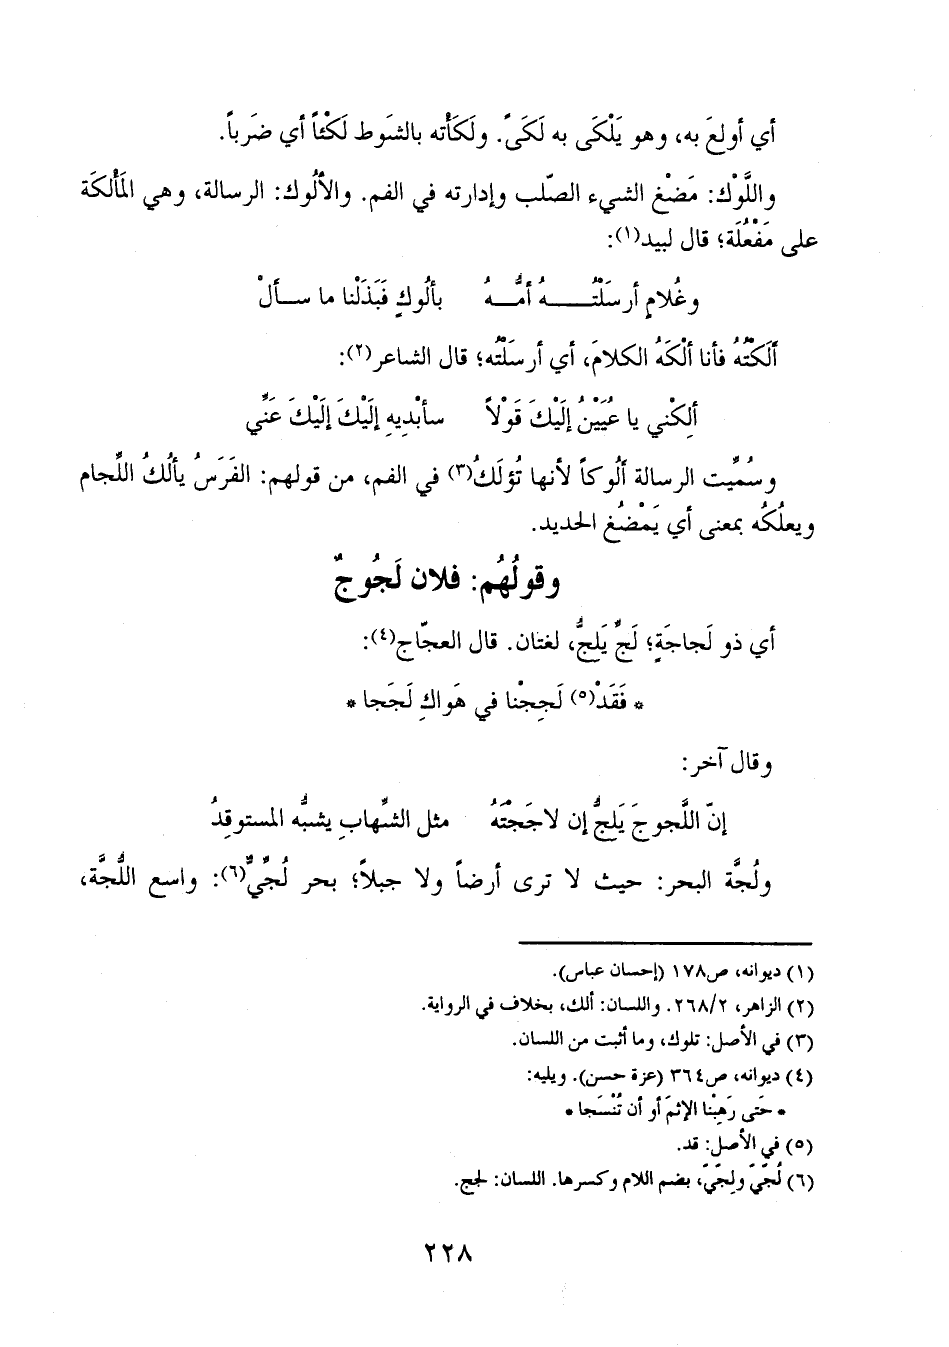 أي أولعَ به، وهو يَلْكَى به لَكَىً. ولَكَأْته بالسَوط لَكْئاً أي ضَرباً.
واللَّوْك: مَضْغ الشيء الصّلب وإدارته في الفم. والألُوك: الرسالة، وهي المَألَكَة
على مَفْعُلَة؛ قال لبيد(١):
وغُلامٍ أرسَلَتْـــــهُ أمُّـــهُ بألُوكٍ فَبَذَلْنا ما ســأَلْ
ألَكتُهُ فأنا ألْكَهُ الكلامَ، أي أرسَلْتُه؛ قال الشاعر(٢):
ألِكْني يا عُيَيْنُ إلَيْكَ قَوْلاً سأبْدِيهِ إلَيْكَ إلَيْكَ عَنِّي
وسُمِّيت الرسالة ألُوكاً لأنها تُؤلَكُ(٣) في الفم، من قولهم: الفَرَسُ يألكُ اللِّجام
ويعلُكُه بمعنى أي يَمْضُغ الحديد.
وقولُهُم: فلان لَجُوجٌ
أي ذو لَجاجَةٍ؛ لَجَّ يَلِجُّ، لغتان. قال العجّاج(٤):
* فَقَدْ(٥) لَجِجْنا في هَواكِ لَجَجا *
وقال آخر:
إنّ اللَّجوجَ يَلَجُّ إن لاجَجْتَهُ مثل الشِّهابِ يشبُّه المستوقِدُ
ولُجَّة البحر: حيث لا ترى أرضاً ولا جبلاً؛ بحر لُجِّيٌّ(٦): واسع اللُّجَّة،
(١) ديوانه، ص١٧٨ (إحسان عباس).
(٢) الزاهر، ٢٦٨/٢. واللسان: ألك، بخلاف في الرواية.
(٣) في الأصل: تلوك، وما أثبت من اللسان.
(٤) ديوانه، ص٣٦٤ (عزة حسن). ويليه:
* حَتى رَهِبْنا الإثمَ أو أن تُنْسَجا *
(٥) في الأصل: قد.
(٦) لُجّيّ ولِجّيّ، بضم اللام وكسرها. اللسان: لجج.
٢٢٨